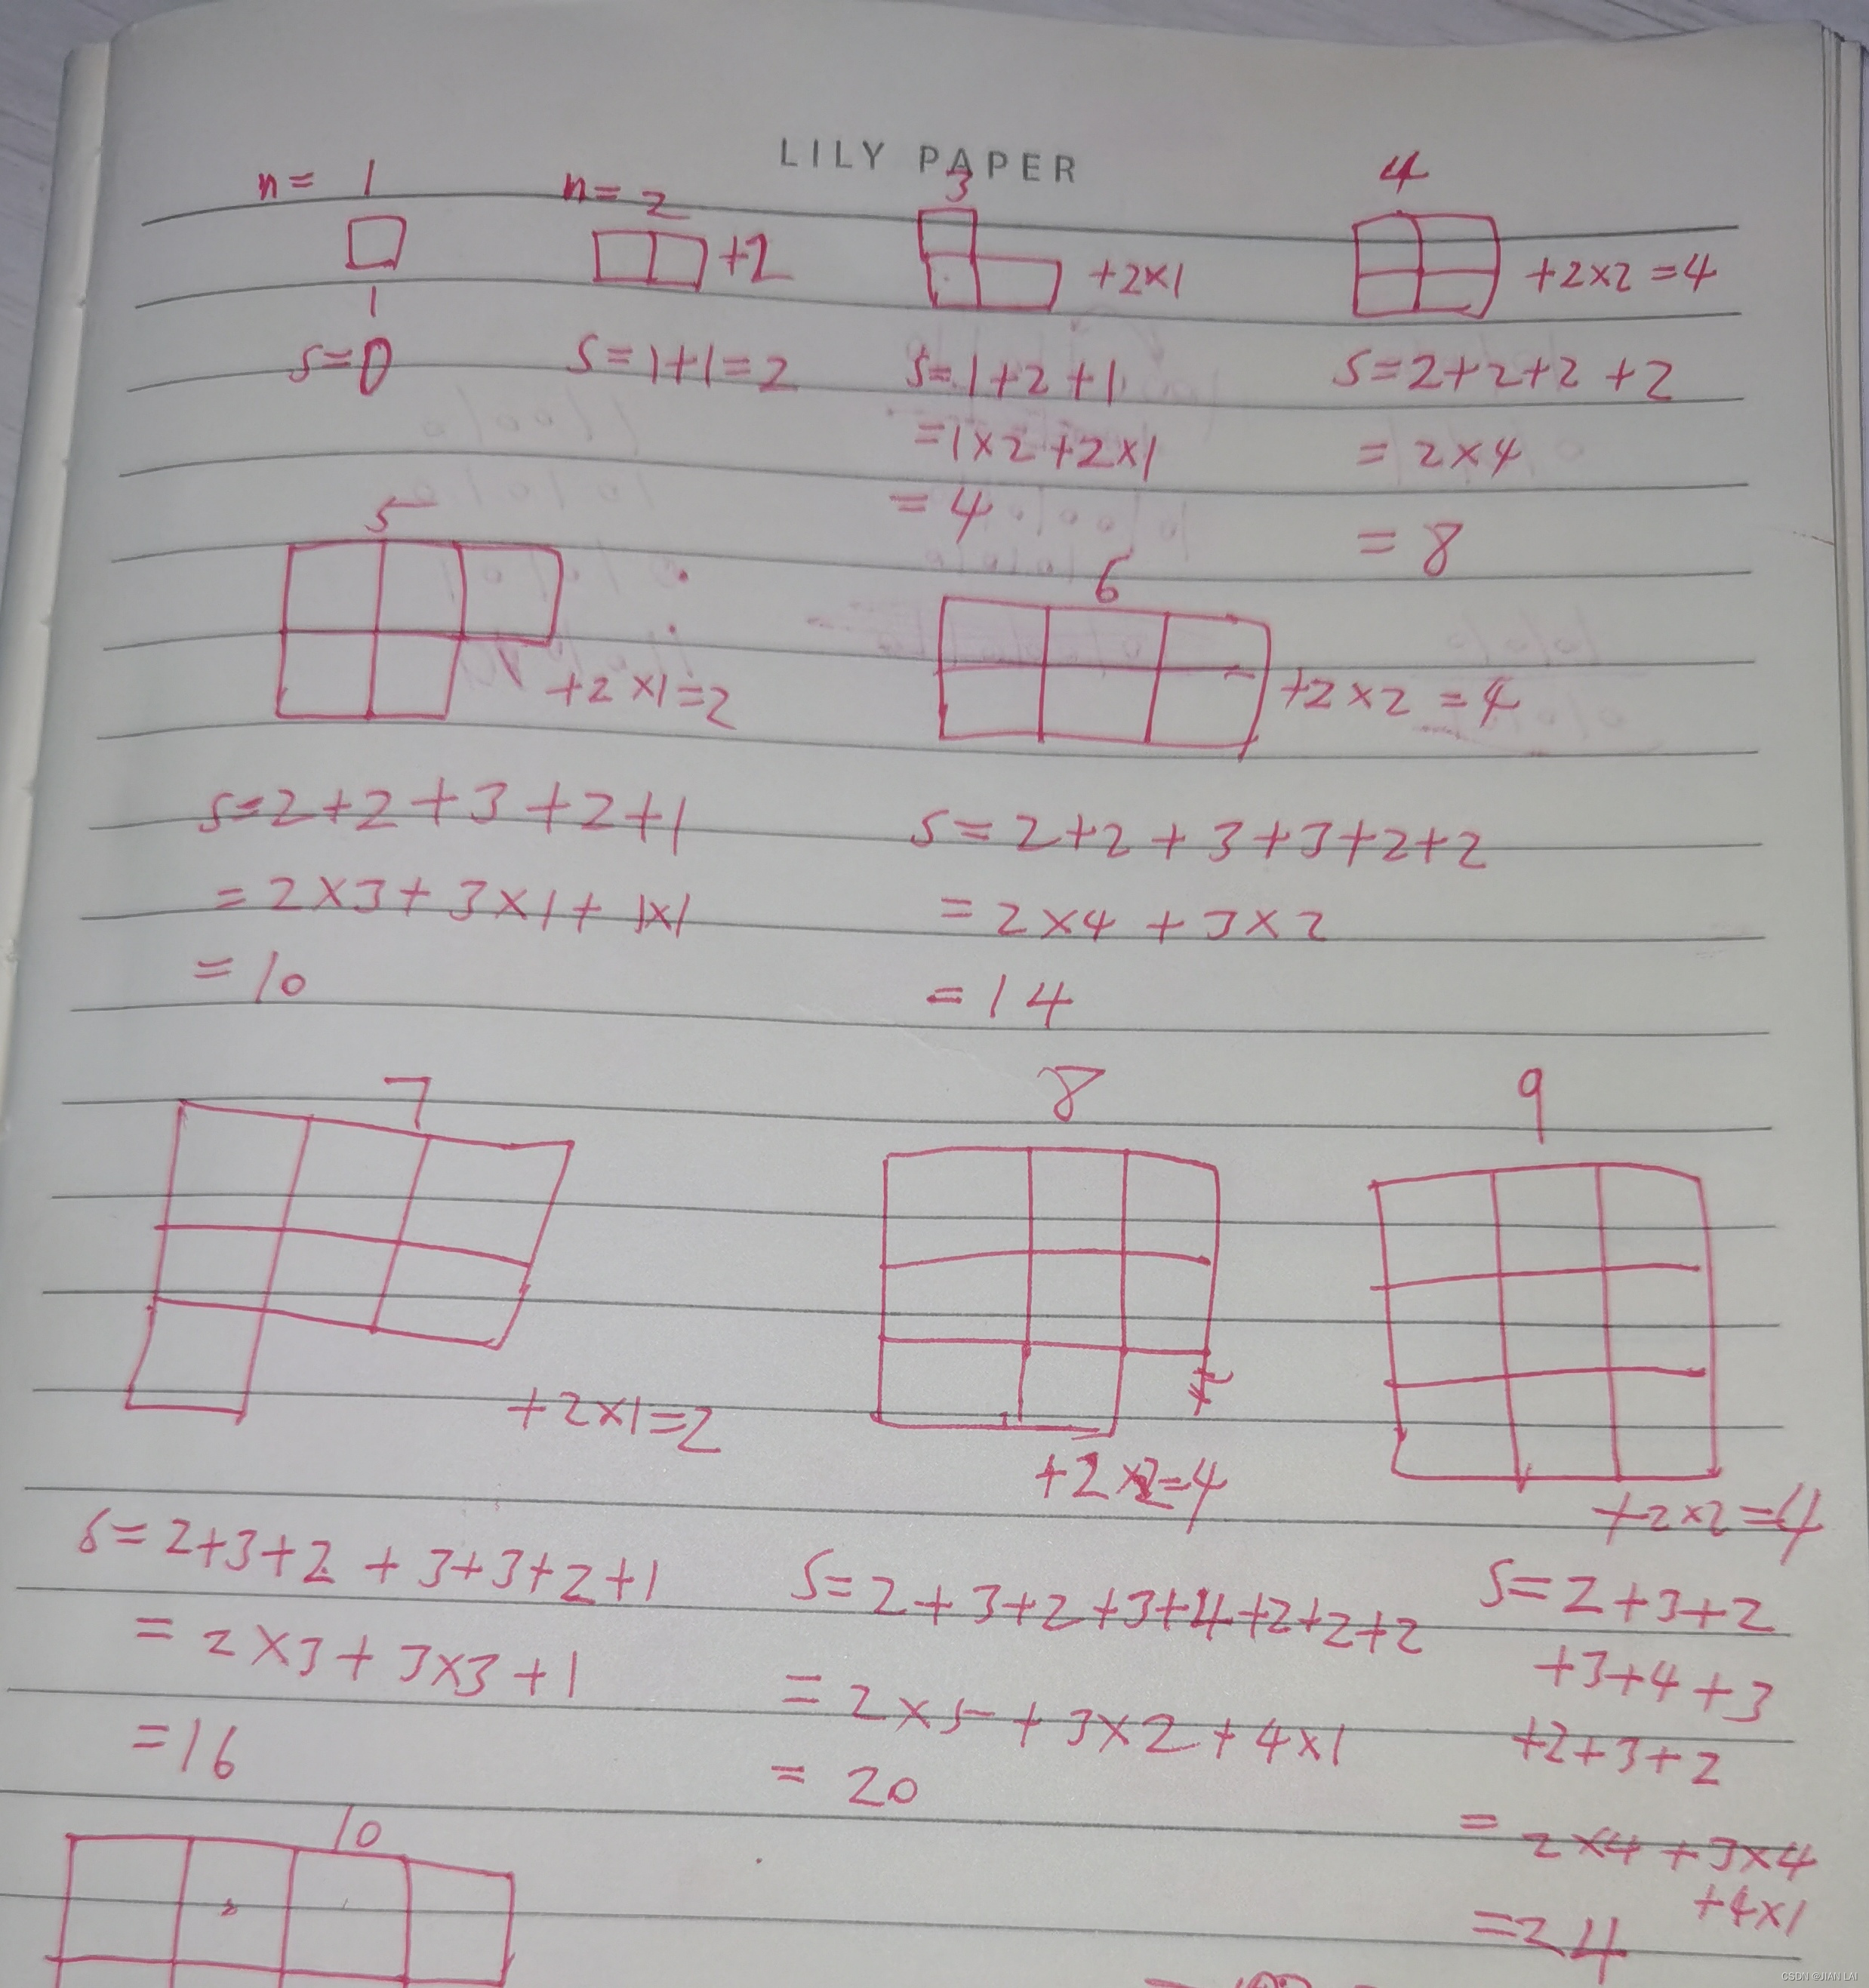 LILY PAPER
n= 1 n=2 3 4
+2 +2×1 +2×2=4
1
S=0 S=1+1=2 S=1+2+1 S=2+2+2+2
=1×2+2×1 =2×4
=4 =8
5 6
+2×1=2 +2×2=4
S=2+2+3+2+1 S=2+2+3+3+2+2
=2×3+3×1+1×1 =2×4+3×2
=10 =14
7 8 9
+2×1=2 +2×2=4 +2×2=4
S=2+3+2+3+3+2+1 S=2+3+2+3+4+2+2+2 S=2+3+2
+3+4+3
+2+3+2
=2×3+3×3+1 =2×5+3×2+4×1 =2×4+3×4
+4×1
=16 =20 =24
10
CSDN @JIAN LAI